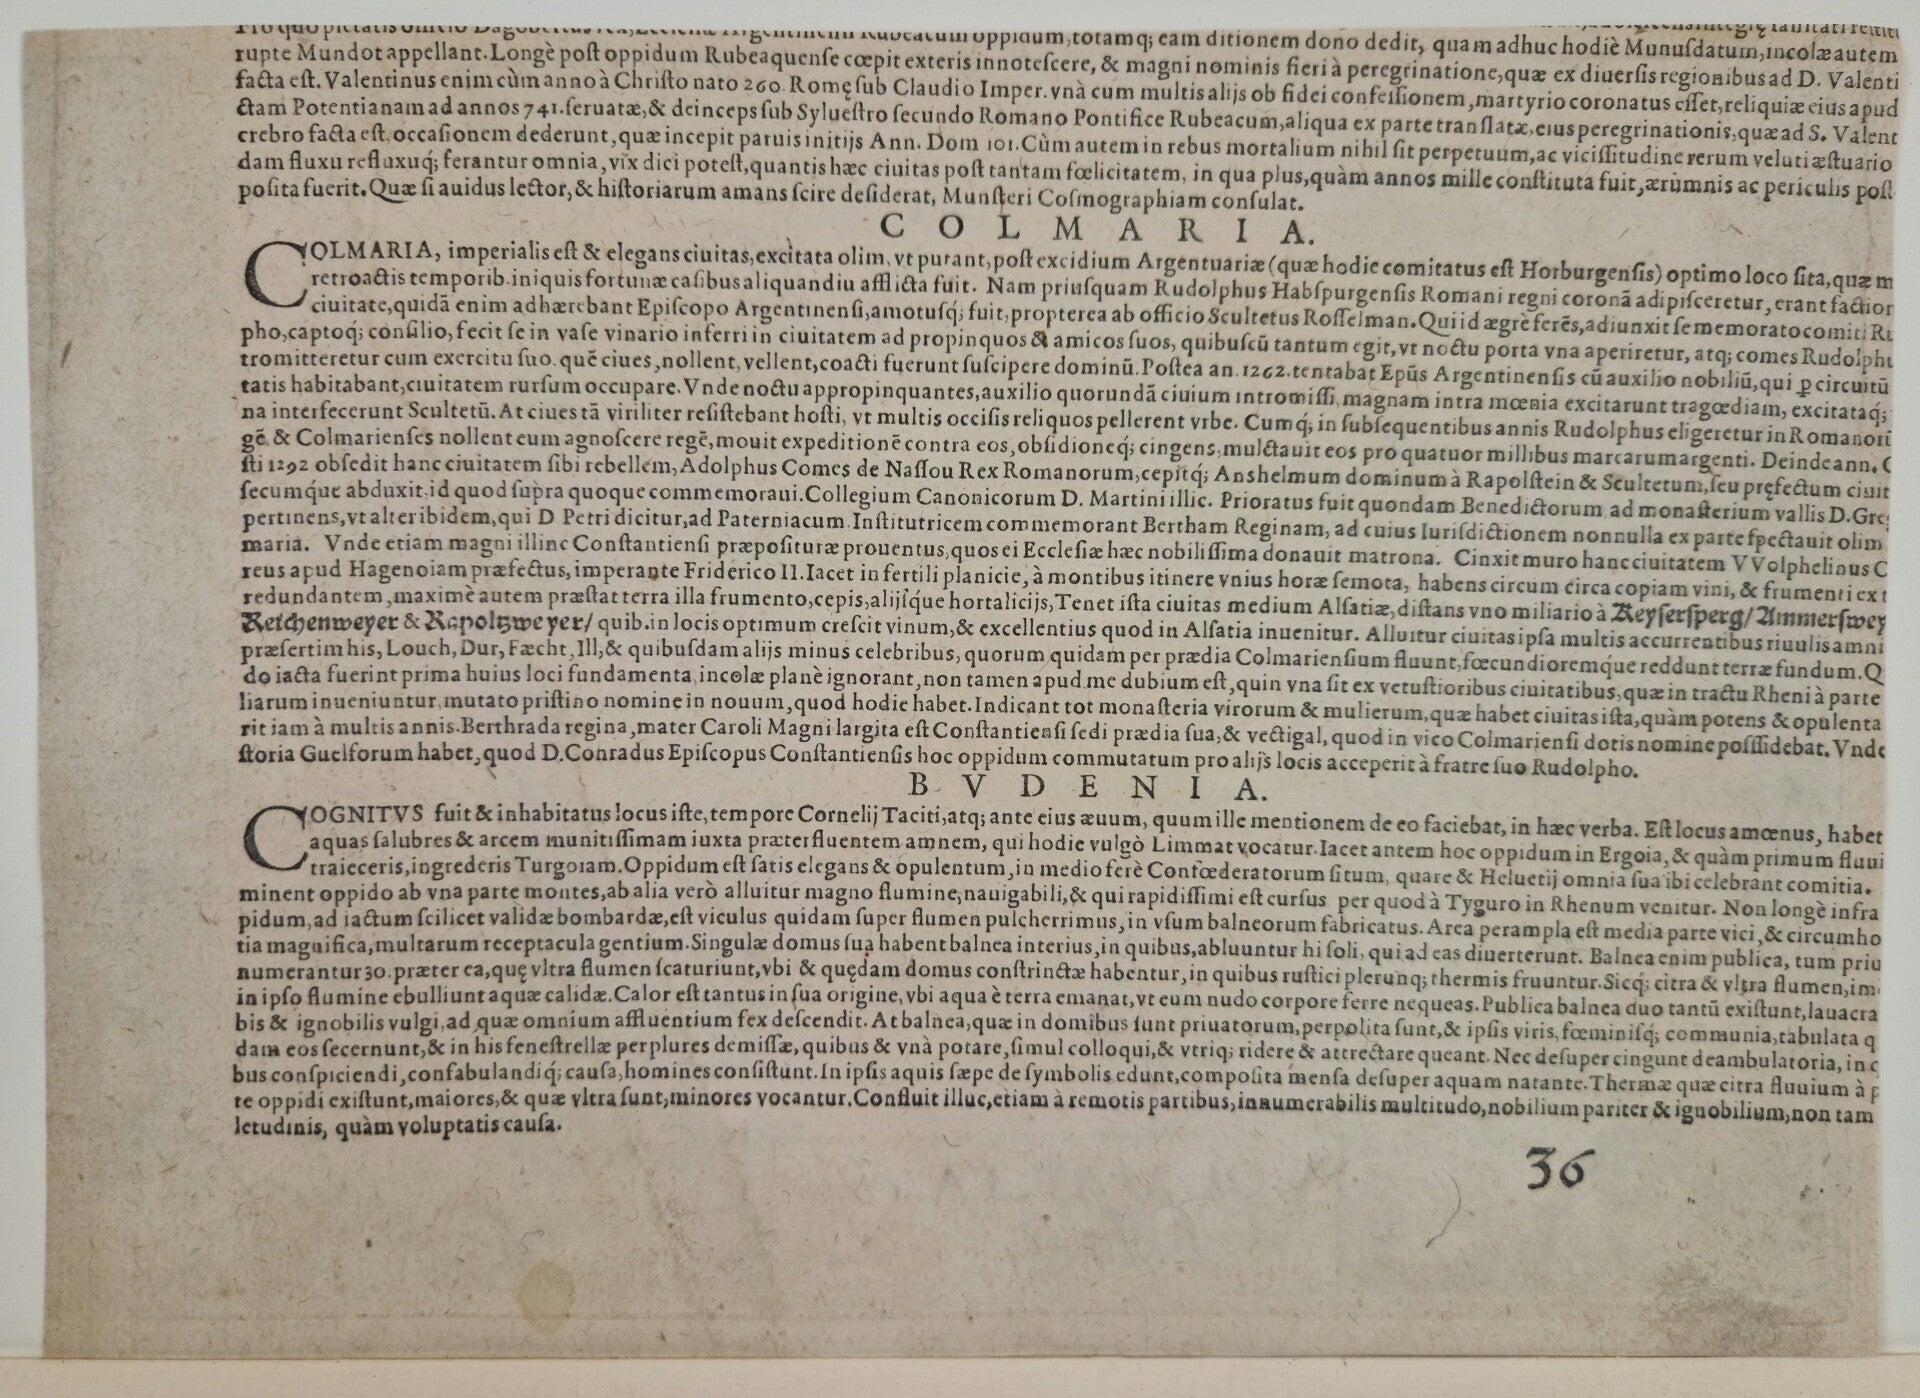 Pro quo pietatis officio Dagobertus rex, Ecclesiæ Argentinensi Rubeacum oppidum, totamq; eam ditionem dono dedit, quam adhuc hodiè Munuſdatum, incolæ autem
rupte Mundot appellant. Longè poſt oppidum Rubeaquenſe cœpit exteris innoteſcere, & magni nominis fieri à peregrinatione, quæ ex diuerſis regionibus ad D. Valenti
facta eſt. Valentinus enim cùm anno à Chriſto nato 260. Romę ſub Claudio Imper. vnà cum multis alijs ob fidei confeſſionem, martyrio coronatus eſſet, reliquiæ eius apud
ctam Potentianam ad annos 741. ſeruatæ, & deinceps ſub Sylueſtro ſecundo Romano Pontifice Rubeacum, aliqua ex parte tranſlatæ, eius peregrinationis, quæ ad S. Valent
crebro facta eſt, occaſionem dederunt, quæ incepit paruis initijs Ann. Dom 101. Cùm autem in rebus mortalium nihil ſit perpetuum, ac viciſſitudine rerum veluti æſtuario
dam fluxu refluxuq́; ferantur omnia, vix dici poteſt, quantis hæc ciuitas poſt tantam fœlicitatem, in qua plus, quàm annos mille conſtituta fuit, ærùmnis ac periculis poſt
poſita fuerit. Quæ ſi auidus lector, & hiſtoriarum amans ſcire deſiderat, Munſteri Coſmographiam conſulat.
COLMARIA.
COLMARIA, imperialis eſt & elegans ciuitas, excitata olim, vt putant, poſt excidium Argentuariæ (quæ hodie comitatus eſt Horburgenſis) optimo loco ſita, quæ m
retroactis temporib. iniquis fortunæ caſibus aliquandiu afflicta fuit. Nam priuſquam Rudolphus Habſpurgenſis Romani regni coronā adipiſceretur, erant factior
ciuitate, quidā enim adhærebant Epiſcopo Argentinenſi, amotuſq́; fuit, propterea ab officio Scultetus Roſſelman. Qui id ægrè ferēs, adiunxit ſe memorato comiti Ru
pho, captoq́; conſilio, fecit ſe in vaſe vinario inferri in ciuitatem ad propinquos & amicos ſuos, quibuſcū tantum egit, vt noctu porta vna aperiretur, atq; comes Rudolphu
tromitteretur cum exercitu ſuo. quē ciues, nollent, vellent, coacti fuerunt ſuſcipere dominū. Poſtea an. 1262. tentabat Epūs Argentinenſis cū auxilio nobiliū, qui ꝑ circuitū
tatis habitabant, ciuitatem rurſum occupare. Vnde noctu appropinquantes, auxilio quorundā ciuium intromiſſi, magnam intra mœnia excitarunt tragœdiam, excitataq́;
na interfecerunt Scultetū. At ciues tā viriliter reſiſtebant hoſti, vt multis occiſis reliquos pellerent vrbe. Cumq́; in ſubſequentibus annis Rudolphus eligeretur in Romanorū
gē & Colmarienſes nollent eum agnoſcere regē, mouit expeditionē contra eos, obſidioneq́; cingens, mulctauit eos pro quatuor millibus marcarum argenti. Deinde ann. C
ſti 1292 obſedit hanc ciuitatem ſibi rebellem, Adolphus Comes de Naſſou Rex Romanorum, cepitq́; Anshelmum dominum à Rapolſtein & Scultetum, ſeu pręfectum ciuit
ſecumq́ue abduxit, id quod ſupra quoque commemoraui. Collegium Canonicorum D. Martini illic. Prioratus fuit quondam Benedictorum ad monaſterium vallis D. Gre
pertinens, vt alter ibidem, qui D Petri dicitur, ad Paterniacum. Inſtitutricem commemorant Bertham Reginam, ad cuius Iuriſdictionem nonnulla ex parte ſpectauit olim
maria. Vnde etiam magni illinc Conſtantienſi præpoſituræ prouentus, quos ei Eccleſiæ hæc nobiliſſima donauit matrona. Cinxit muro hanc ciuitatem VVolphelinus C
reus apud Hagenoiam præfectus, imperante Friderico II. Iacet in fertili planicie, à montibus itinere vnius horæ ſemota, habens circum circa copiam vini, & frumenti ex t
redundantem, maximè autem præſtat terra illa frumento, cepis, alijſq́ue hortalicijs, Tenet iſta ciuitas medium Alſatiæ, diſtans vno miliario à Keyſerſperg/ Ammerſwey
Reichenweyer & Rapoltzweyer/ quib. in locis optimum creſcit vinum, & excellentius quod in Alſatia inuenitur. Alluitur ciuitas ipſa multis accurrentibus riuulis amni
præſertim his, Louch, Dur, Fæcht, Ill, & quibuſdam alijs minus celebribus, quorum quidam per prædia Colmarienſium fluunt, fœcundioremque reddunt terræ fundum. Q
do iacta fuerint prima huius loci fundamenta, incolæ planè ignorant, non tamen apud me dubium eſt, quin vna ſit ex vetuſtioribus ciuitatibus, quæ in tractu Rheni à parte
liarum inueniuntur, mutato priſtino nomine in nouum, quod hodie habet. Indicant tot monaſteria virorum & mulierum, quæ habet ciuitas iſta, quàm potens & opulenta
rit iam à multis annis. Berthrada regina, mater Caroli Magni largita eſt Conſtantienſi ſedi prædia ſua, & vectigal, quod in vico Colmarienſi dotis nomine poſſidebat. Vnde
ſtoria Guelforum habet, quod D. Conradus Epiſcopus Conſtantienſis hoc oppidum commutatum pro alijs locis acceperit à fratre ſuo Rudolpho.
BVDENIA.
COGNITVS fuit & inhabitatus locus iſte, tempore Cornelij Taciti, atq; ante eius æuum, quum ille mentionem de eo faciebat, in hæc verba. Eſt locus amœnus, habet
aquas ſalubres & arcem munitiſſimam iuxta præterfluentem amnem, qui hodie vulgò Limmat vocatur. Iacet antem hoc oppidum in Ergoia, & quàm primum fluui
traieceris, ingrederis Turgoiam. Oppidum eſt ſatis elegans & opulentum, in medio ferè Confœderatorum ſitum, quare & Heluetij omnia ſua ibi celebrant comitia.
minent oppido ab vna parte montes, ab alia verò alluitur magno flumine, nauigabili, & qui rapidiſſimi eſt curſus per quod à Tyguro in Rhenum venitur. Non longè infra
pidum, ad iactum ſcilicet validæ bombardæ, eſt viculus quidam ſuper flumen pulcherrimus, in vſum balneorum fabricatus. Area perampla eſt media parte vici, & circumho
tia maguifica, multarum receptacula gentium. Singulæ domus ſua habent balnea interius, in quibus, abluuntur hi ſoli, qui ad eas diuerterunt. Balnea enim publica, tum priu
numerantur 30. præter ea, quę vltra flumen ſcaturiunt, vbi & quędam domus conſtrinctæ habentur, in quibus ruſtici plerunq; thermis fruuntur. Sicq́; citra & vltra flumen, im
in ipſo flumine ebulliunt aquæ calidæ. Calor eſt tantus in ſua origine, vbi aqua è terra emanat, vt eum nudo corpore ferre nequeas. Publica balnea duo tantū exiſtunt, lauacra
bis & ignobilis vulgi, ad quæ omnium affluentium fex deſcendit. At balnea, quæ in domibus ſunt priuatorum, perpolita ſunt, & ipſis viris, fœminiſq́; communia, tabulata q
dam eos ſecernunt, & in his feneſtrellæ perplures demiſſæ, quibus & vnà potare, ſimul colloqui, & vtriq; ridere & attrectare queant. Nec deſuper cingunt deambulatoria, in q
bus conſpiciendi, confabulandiq́; cauſa, homines conſiſtunt. In ipſis aquis ſæpe de ſymbolis edunt, compoſita menſa deſuper aquam natante. Thermæ quæ citra fluuium à p
te oppidi exiſtunt, maiores, & quæ vltra ſunt, minores vocantur. Confluit illuc, etiam à remotis partibus, innumerabilis multitudo, nobilium pariter & iguobilium, non tam
letudinis, quàm voluptatis cauſa.
36